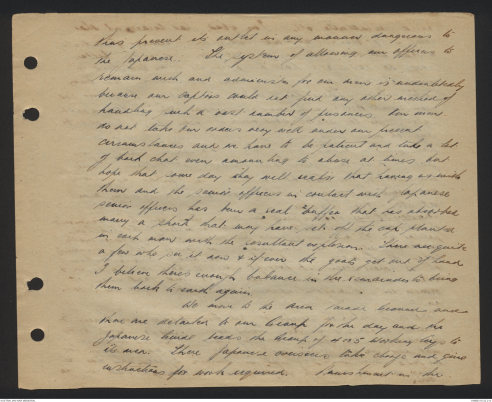 thus prevent its outlet in any manner dangerous to
the Japanese. The system of allowing our officers to
remain with and administer for our men is undoubtedly
because our captors could not find any other method of
handling such a vast number of prisoners. Our men
do not take our orders very well under our present
circumstances and we have to be patient and take a lot
of back chat even amounting to abuse at times, but
hope that some day they will realise that having us with
them and the senior officers in contact with Japanese
senior officers has been a real "buffer" that has absorbed
many a "shock" that may have set off the cap planted
in each man with the resultant explosion. There are quite
a few who see it now & if ever the goats get out of hand
I believe there's enough balance in the remainder to bring
them back to earth again.
We move to the area and
are detailed to our for the day and the
Japanese the of working to
men. There Japanese overseers take charge and give
instructions for work required. in the